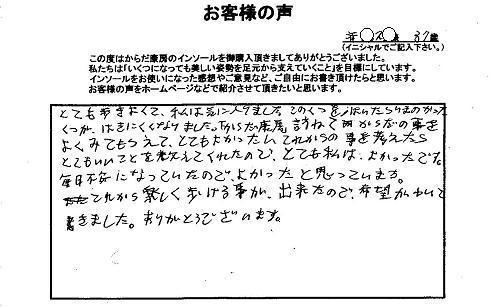 お客様の声
○○ 37歳
(イニシャルでご記入下さい。)
この度はからだ豪房のインソールを御購入頂きましてありがとうございました。
私たちは「いくつになっても美しい姿勢を足元から支えていくこと」を目標にしています。
インソールをお使いになった感想やご意見など、ご自由にお書き頂けたらと思います。
お客様の声をホームページなどで紹介させて頂きたいと思います。
とても歩きよくて、私は気に入りました。このくつをはいたら
くつが、はきにくくなりました。からだ豪房 訪ねて からだの事を
よくみてもらえて、とてもよかったし、これからの事を考えたら
とてもいいことを教えてくれたので、とても私は、よかったです。
毎日不安になっていたので、よかったと思っています。
これから楽しく歩ける事が、出来たので、希望がわいて
きました。ありがとうございます。